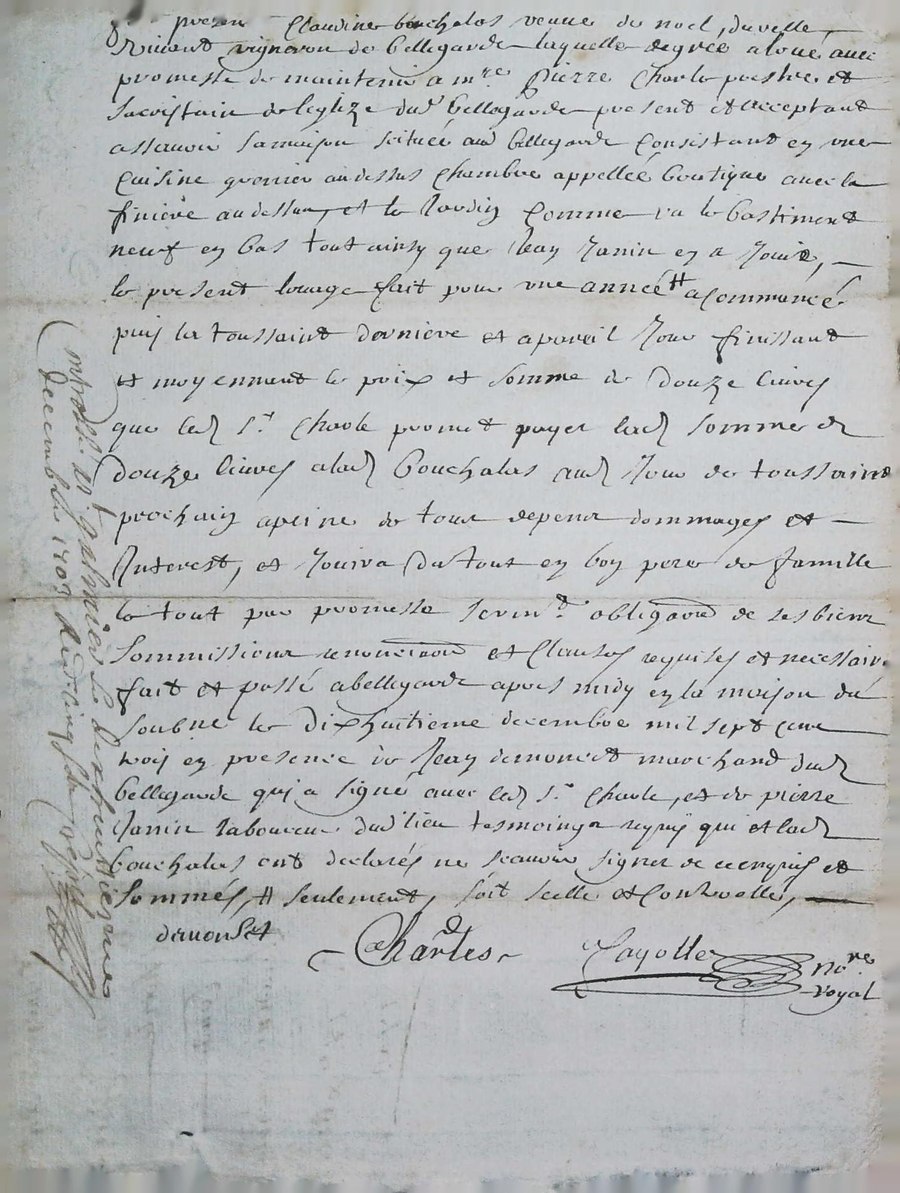 present Claudine bouchalas veuve de noel, duvelle
vivant vigneron de bellegarde laquelle degree a loué avec
promesse de maintenir a mre. Pierre Charle prestre et
sacristain de leglize dud bellegarde present et acceptant
asscavoir sa maison scituée aud bellegarde Consistant en une
Cuisine grenier au dessus chambre appellée boutique avec la
finiere au dessus, et le Jardin Comme va le bastiment
neuf en bas tout ainsy que Jean Janin en a Jouit, —
le present louage fait pour une année # a Commancé
puis la toussaint derniere et a pareil Jour finissant
et moyennant le prix et somme de douze livres
que led Sr. Charle promet payer lad somme de
douze livres a lad bouchalas aud Jour de toussaint
prochain a peine de tous depens dommages et —
Interest, et Jouira du tout en bon pere de famille
le tout par promesse serm.t obligaôn de ses biens
sommissions renonciaôn et Clauses requises et necessaire
fait et passé a bellegarde apres midy en la maison du
soubné le dixhuitieme decembre mil sept cent
trois en presence de Jean demoncet marchand dud
bellegarde qui a signé avec led Sr. Charle, et de pierre
Janin laboureur dud lieu tesmoings requis qui et lad
bouchalas ont declarés ne scavoir signer de ce enquis et
sommés, # seulement, soit scelle et Controlle, —
demonset
Charles
Cayotte nore.
royal
a St galmier le dixhuictiesme
decembre 1703 Receu cinq sols